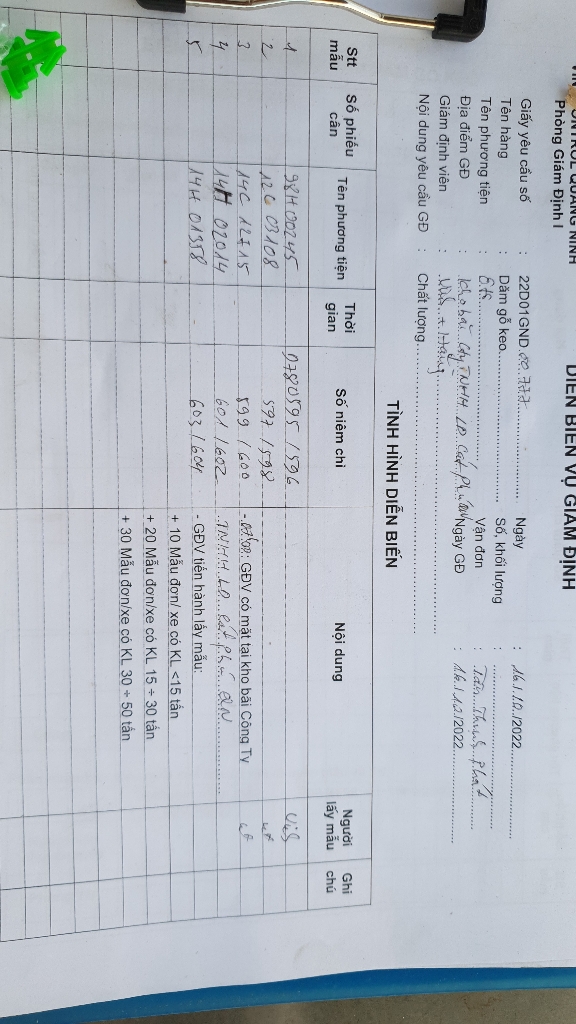 CONTROL QUẢNG NINH
Phòng Giám Định I
DIỄN BIẾN VỤ GIÁM ĐỊNH
Giấy yêu cầu số : 22D01GND.00.777 Ngày : 16/12/2022
Tên hàng : Dăm gỗ keo Số, khối lượng :
Tên phương tiện : Ôtô Vận đơn : Tân Thịnh Phát
Địa điểm GĐ : Kho bãi Cty TNHH LD Ngày GĐ : 16/12/2022
Giám định viên : + Hằng
Nội dung yêu cầu GĐ : Chất lượng
TÌNH HÌNH DIỄN BIẾN
Stt mẫu Số phiếu cân Tên phương tiện Thời gian Số niêm chì Nội dung Người lấy mẫu Ghi chú
1 98H00245 0780595/596
2 12C 03108 597/598
3 14C 12715 599/600 GĐV có mặt tại kho bãi Công Ty
4 14H 02014 601/602 TNHH LD
5 14H 01358 603/604 - GĐV tiến hành lấy mẫu:
+ 10 Mẫu đơn/ xe có KL <15 tấn
+ 20 Mẫu đơn/xe có KL 15 ÷ 30 tấn
+ 30 Mẫu đơn/xe có KL 30 ÷ 50 tấn